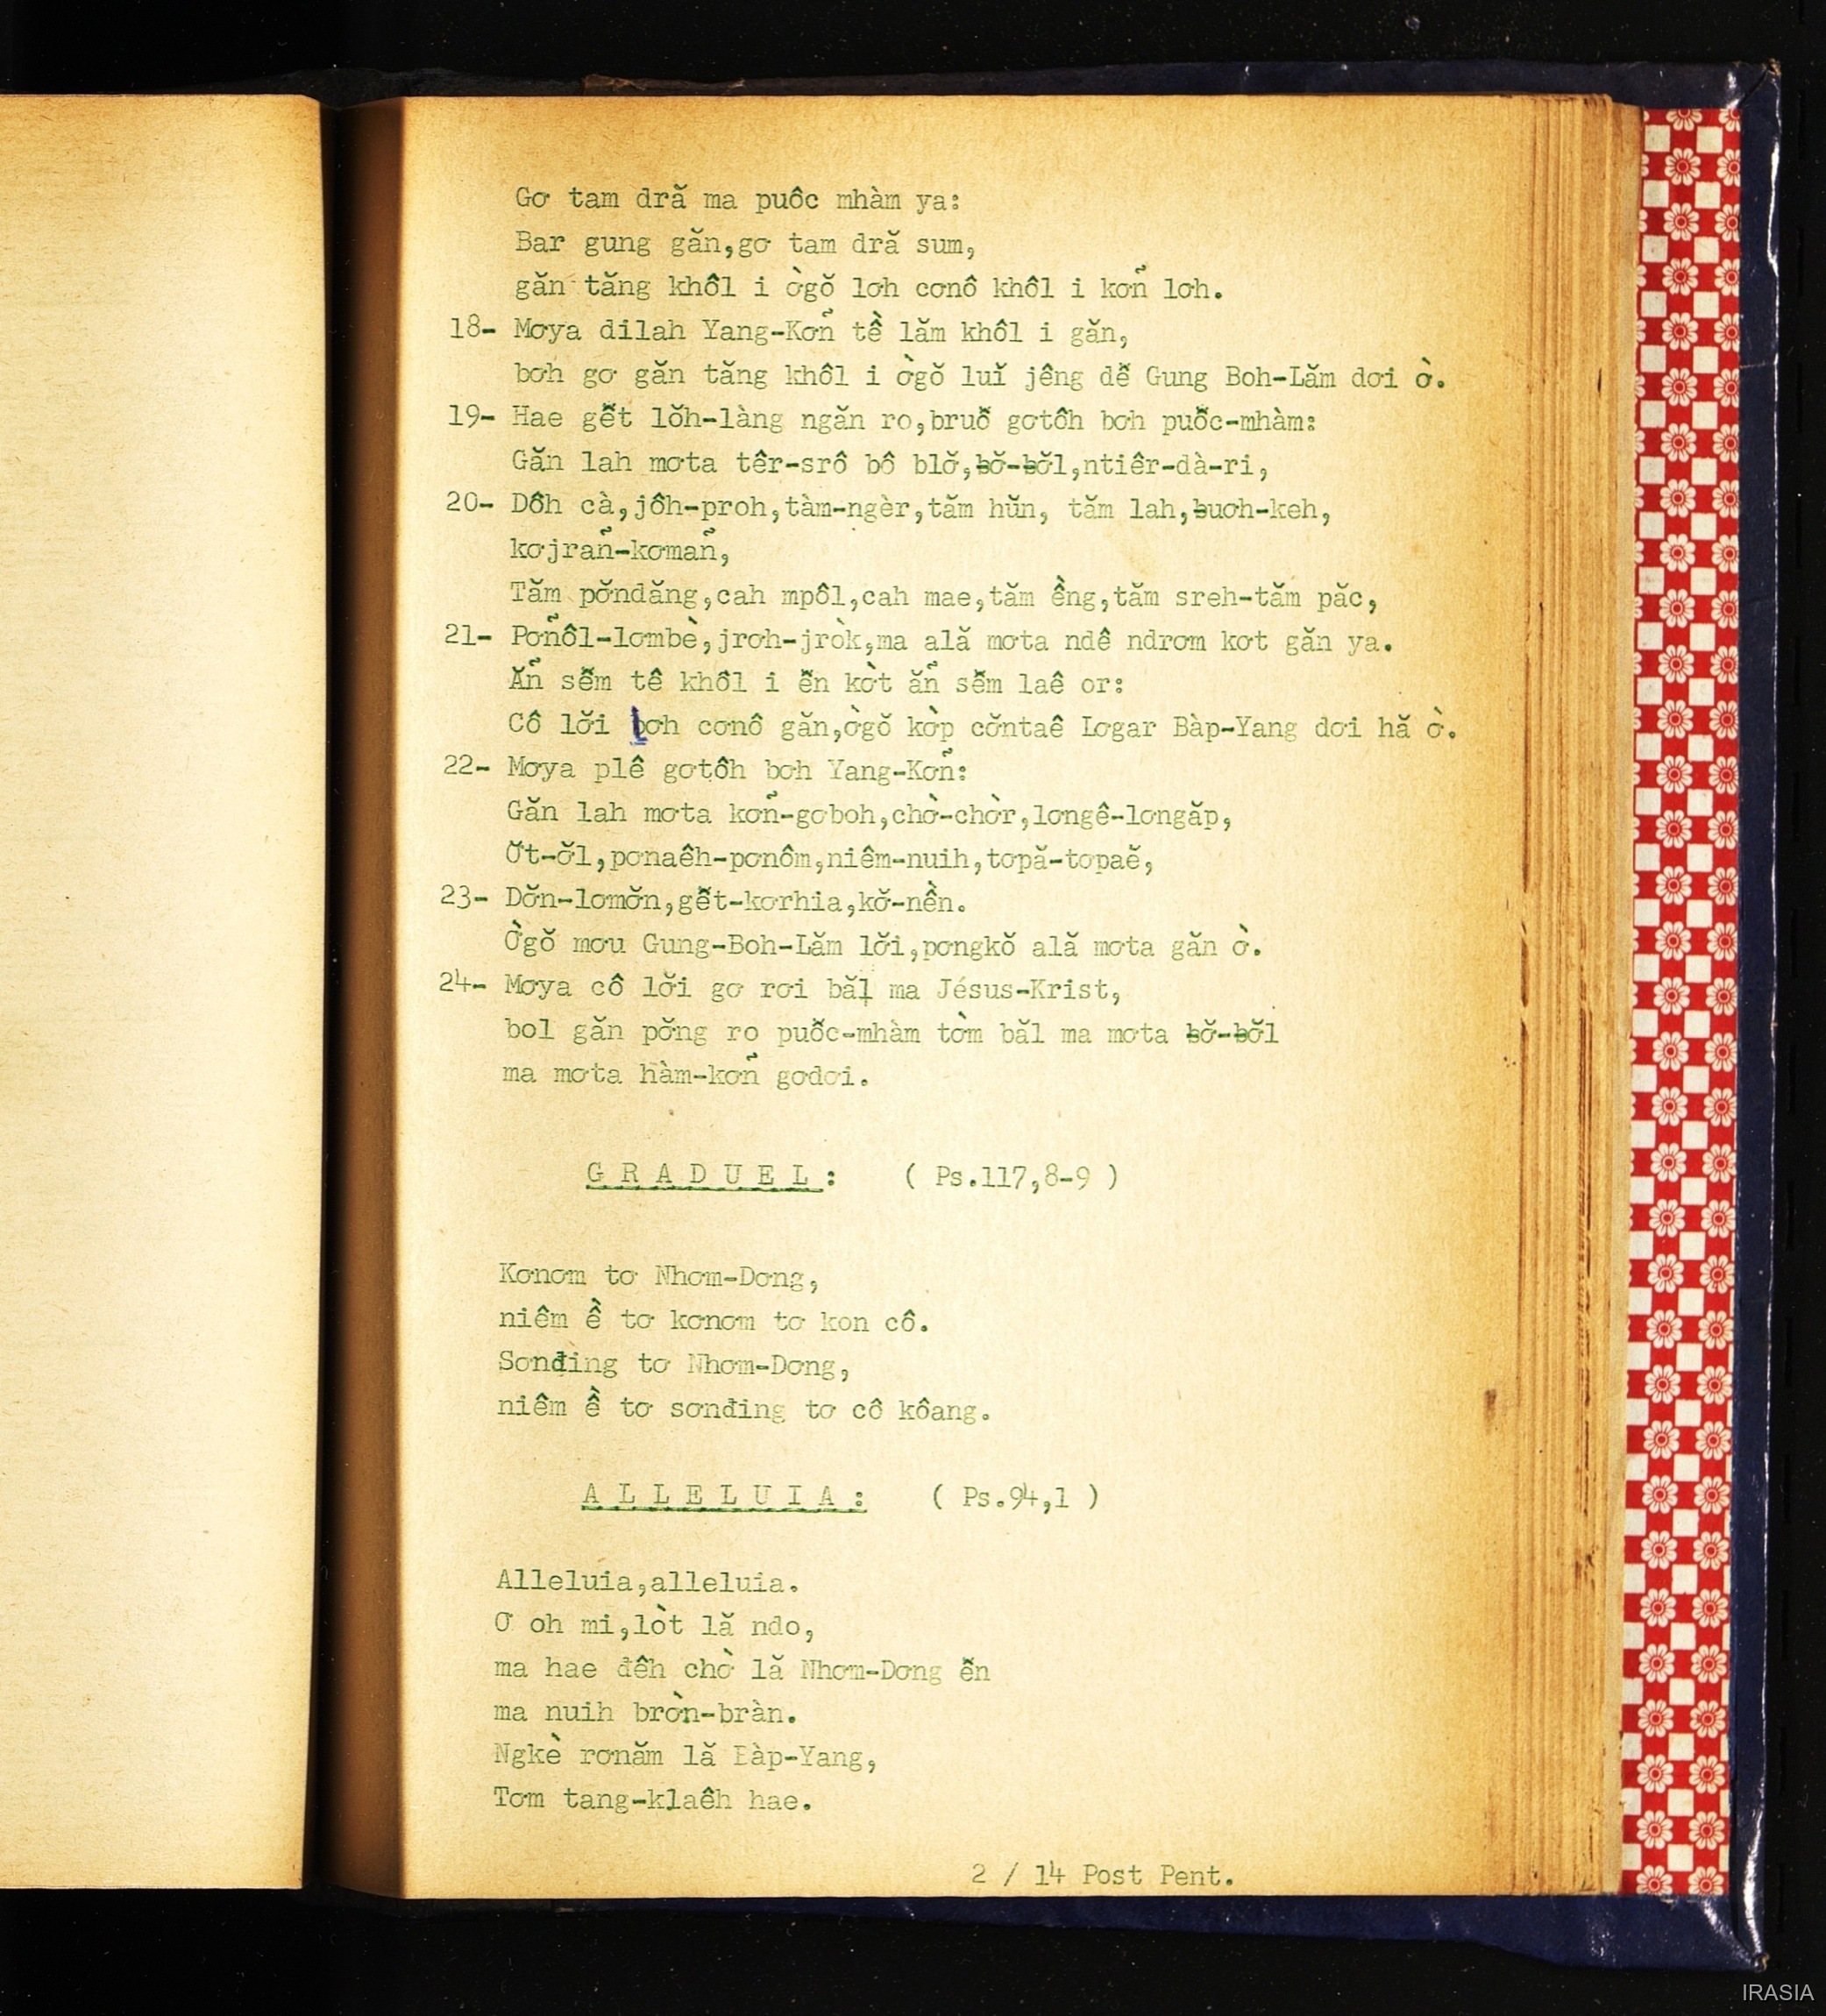 Gơ tam dră ma puôc mhàm ya:
Bar gung găn,gơ tam dră sum,
găn tăng khôl i ờgŏ lơh cơnô khôl i kơñ lơh.
18- Mơya dilah Yang-Kơñ tề lăm khôl i găn,
bơh gơ găn tăng khôl i ờgŏ luĭ jêng dê̆ Gung Boh-Lăm dơi ờ.
19- Hae gê̆t lŏh-làng ngăn ro,bruô̆ gơtôh bơh puô̆c-mhàm:
Găn lah mơta têr-srô bô blơ̆,ƀơ̆-ƀơ̆l,ntiêr-dà-ri,
20- Dôh cà,jôh-proh,tàm-ngèr,tăm hŭn, tăm lah,ƀuơh-keh,
kơjrañ-kơmañ,
Tăm pơ̆ndăng,cah mpôl,cah mae,tăm ềng,tăm sreh-tăm păc,
21- Pơñôl-lơmbè,jrơh-jròk,ma ală mơta ndê ndrơm kơt găn ya.
Ăñ sê̆m tê khôl i ê̆n kờt ăñ sê̆m laê or:
Cô lơ̆i bơh cơnô găn,ờgŏ kờp cơ̆ntaê Lơgar Bàp-Yang dơi hă ờ.
22- Mơya plê gơtôh bơh Yang-Kơñ:
Găn lah mơta kơñ-gơboh,chờ-chờr,lơngê-lơngăp,
Ơ̆t-ơ̆l,pơnaêh-pơnôm,niêm-nuih,tơpă-tơpaĕ,
23- Dơ̆n-lơmơ̆n,gê̆t-kơrhia,kơ̆-nền.
Ờgŏ mơu Gung-Boh-Lăm lơ̆i,pơngkŏ ală mơta găn ờ.
24- Mơya cô lơ̆i gơ rơi băl ma Jésus-Krist,
bol găn pơ̆ng ro puô̆c-mhàm tờm băl ma mơta ƀơ̆-ƀơ̆l
ma mơta hàm-kơñ gơdơi.
G R A D U E L : ( Ps.117,8-9 )
Kơnơm tơ Nhơm-Dơng,
niêm ề tơ kơnơm tơ kon cô.
Sơnđing tơ Nhơm-Dơng,
niêm ề tơ sơnđing tơ cô kôang.
A L L E L U I A : ( Ps.94,1 )
Alleluia,alleluia.
Ơ oh mi,lòt lă ndo,
ma hae đêh chờ lă Nhơm-Dơng ê̆n
ma nuih brờn-bràn.
Ngkè rơnăm lă Bàp-Yang,
Tơm tang-klaêh hae.
2 / 14 Post Pent.
IRASIA